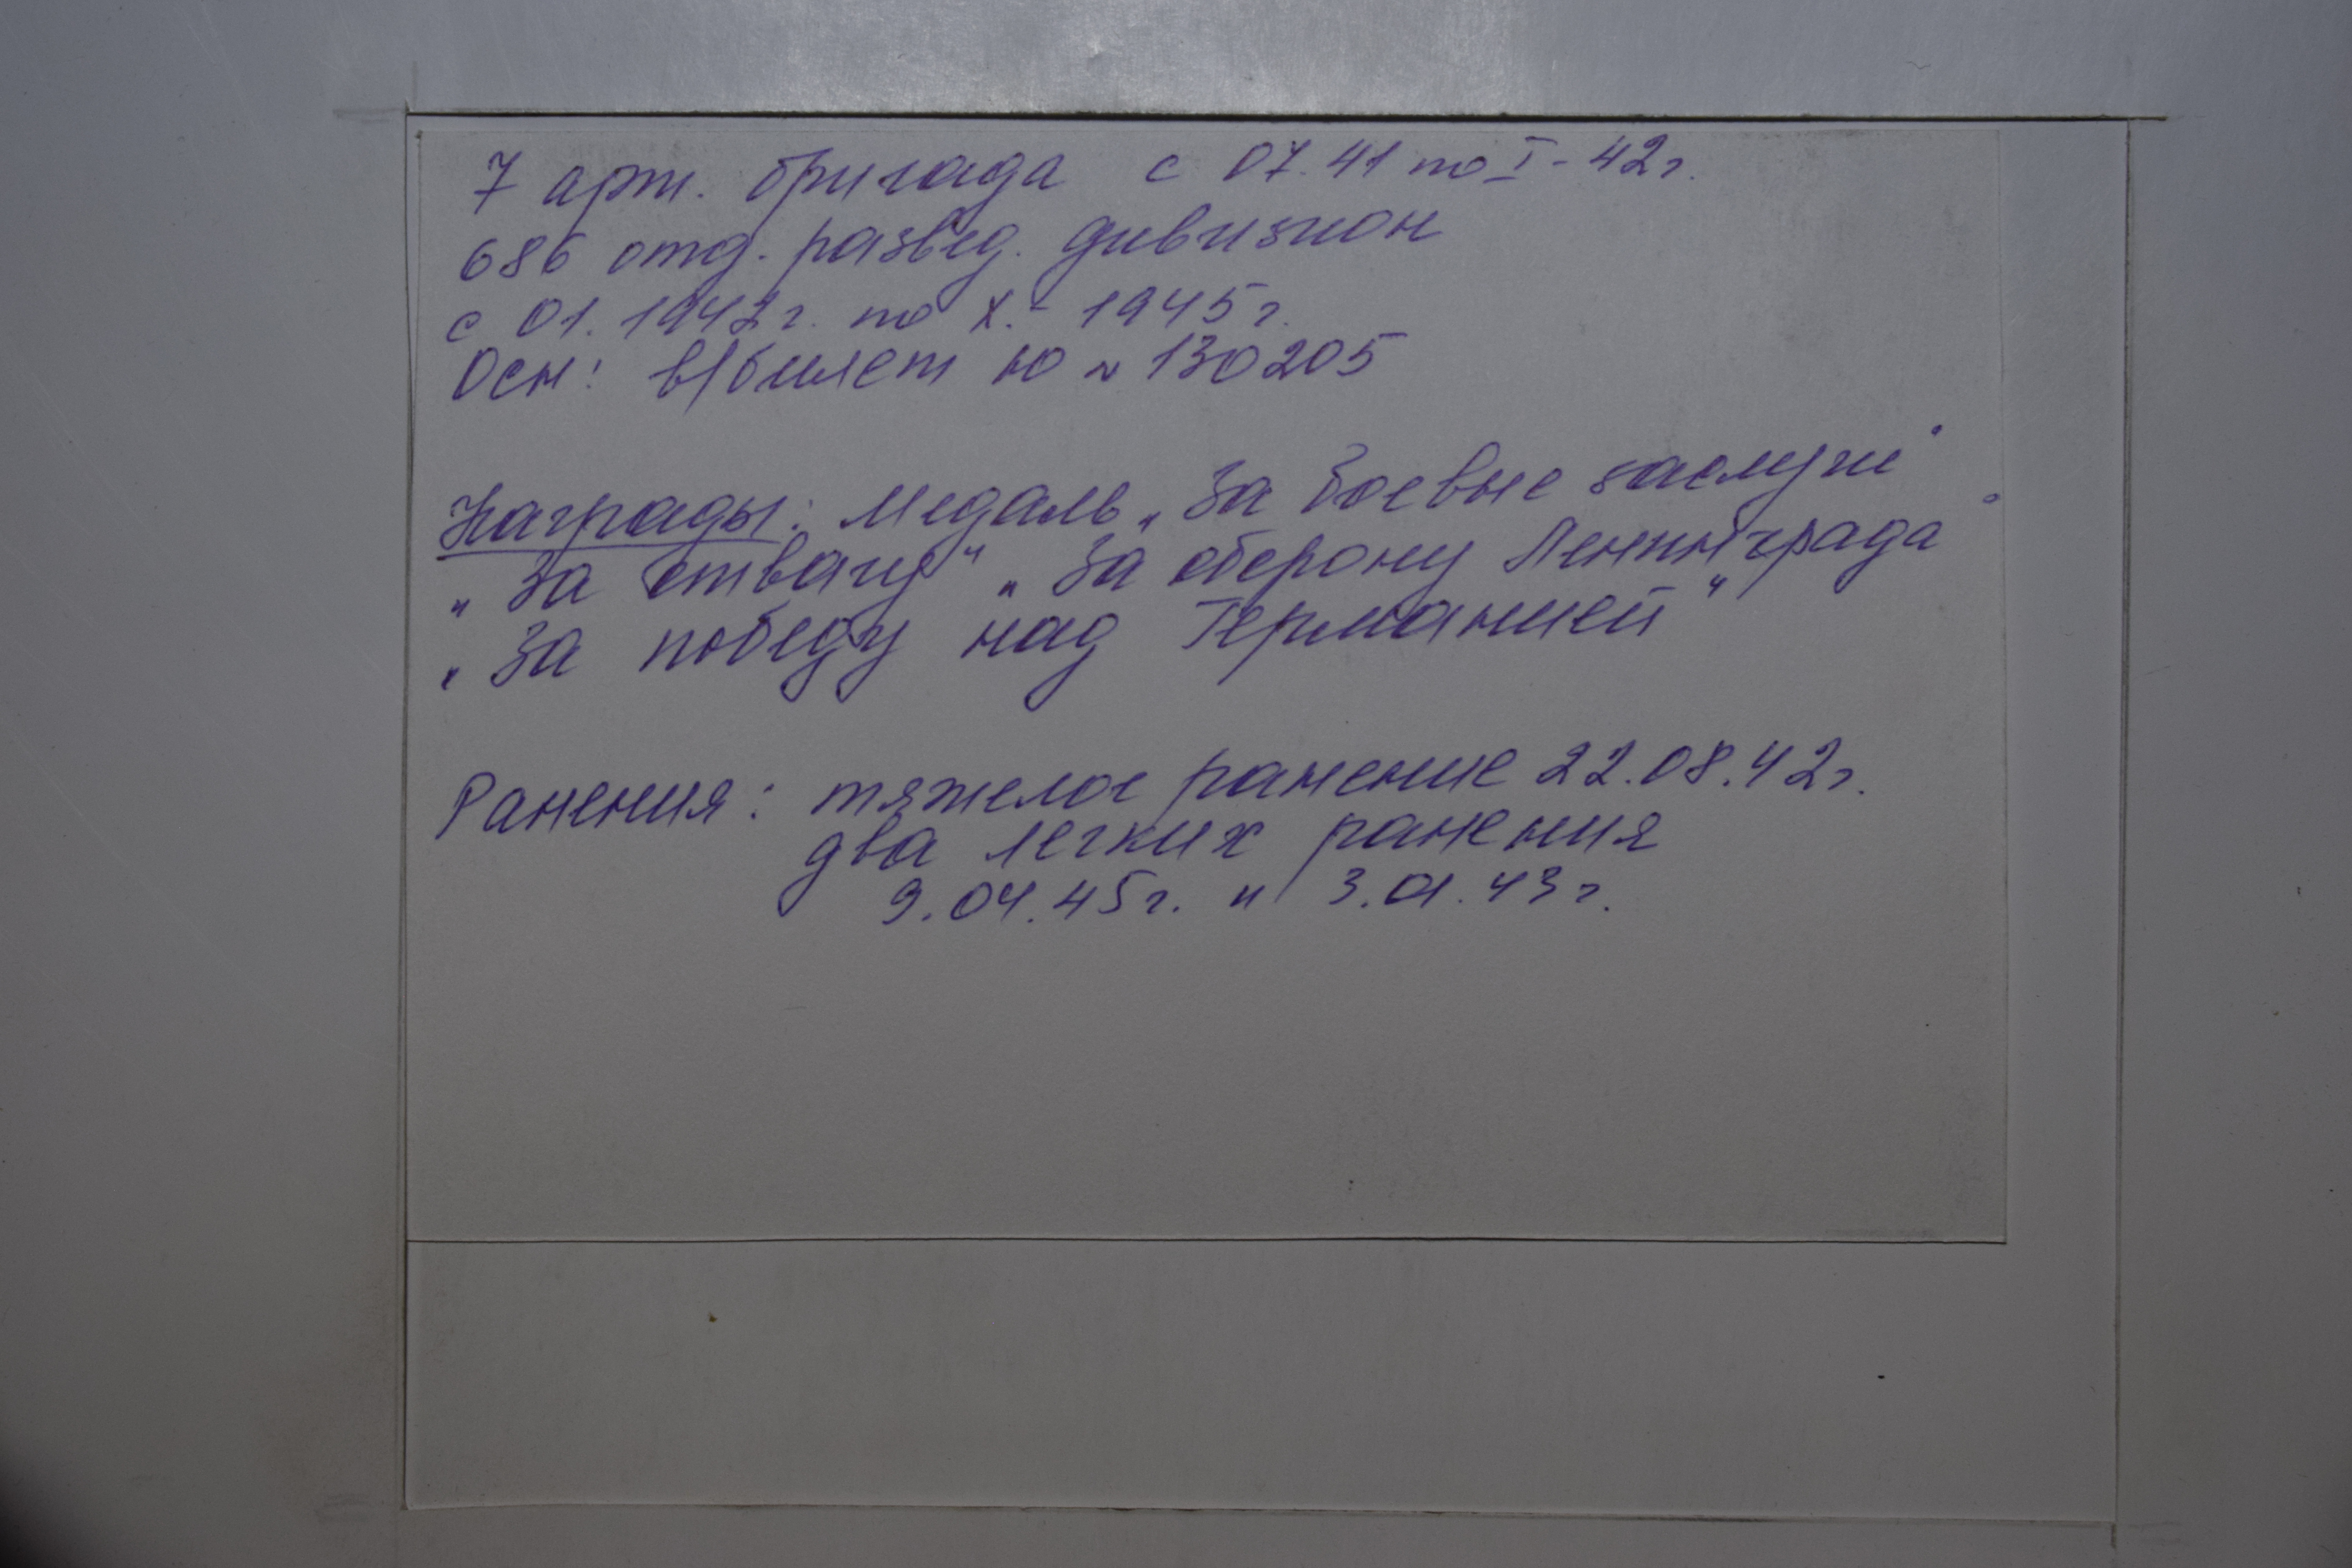 7 арт. бригада с 07.41 по I-42г.
686 отд. развед. дивизион
с 01.1942г. по X.-1945г.
Осн: в/билет Ю № 130205
Награды: Медаль „За боевые заслуги"
„За отвагу" „За оборону Ленинграда"
„За победу над Германией"
Ранения: тяжелое ранение 22.08.42г.
два легких ранения
9.04.45г. и 3.01.43г.